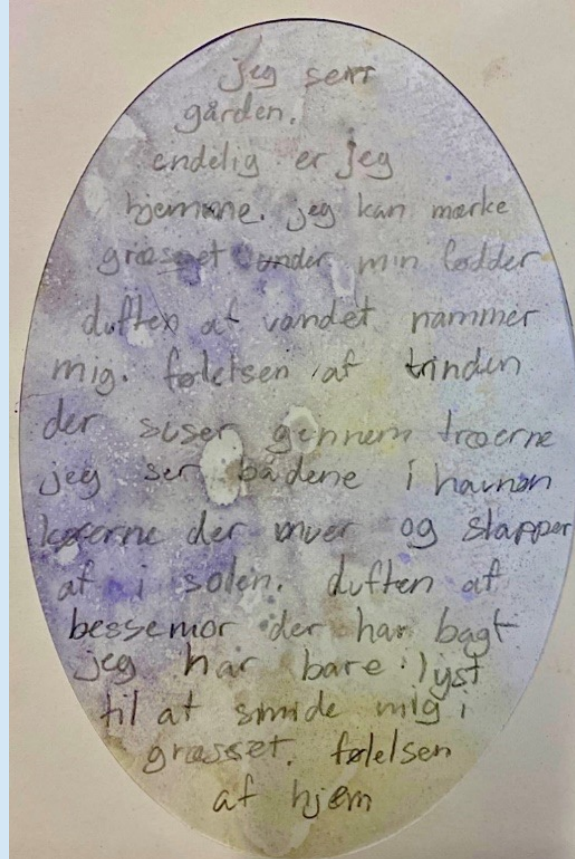 jeg serr
gården.
endelig er jeg
hjemme. jeg kan mærke
græsset under min fødder
duften af vandet rammer
mig. følelsen af trinden
der suser gennem træerne
jeg ser bådene i havnen
køerne der muer og slapper
af i solen. duften af
bessemor der har bagt
jeg har bare lyst
til at smide mig i
græsset. følelsen
af hjem